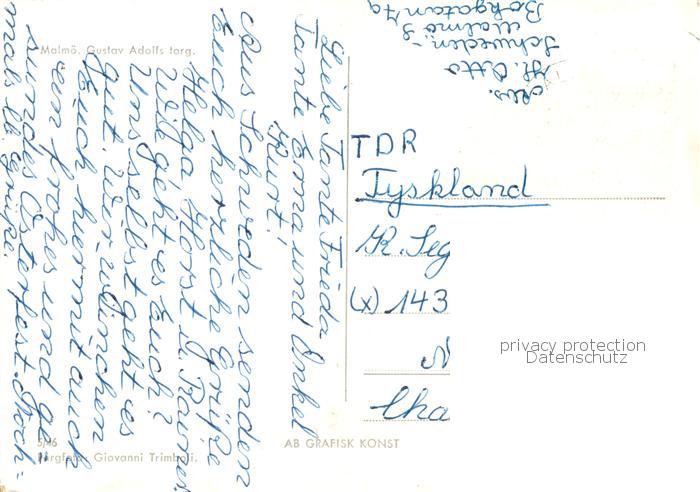 Malmö. Gustav Adolfs torg.
Liebe Tante Frieda
Tante Erna und Onkel
Kurt!
Aus Schweden senden
Euch herzliche Grüße
Helga, Horst u. Rainer
Wie geht es Euch?
Uns selbst geht es
gut. Wir wünschen
Euch hiermit auch
ein frohes und ge-
sundes Osterfest. Noch-
mals ll. Grüße.
Abs.
H. Otto
Schweden-
Malmö S
Bokgatan 7a
TDR
Tyskland
(x) 143
N
privacy protection
Datenschutz
5/46
Färgfoto: Giovanni Trimboli.
AB GRAFISK KONST